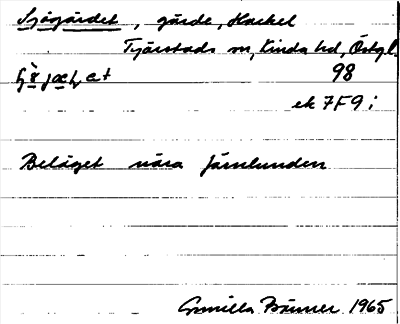 Sjögärdet, gärde, Hackel
Tjärstads sn, Kinda hd, Östgl.
98
ek 7F9i
Beläget nära Järnlunden
Gunilla Bänner 1965